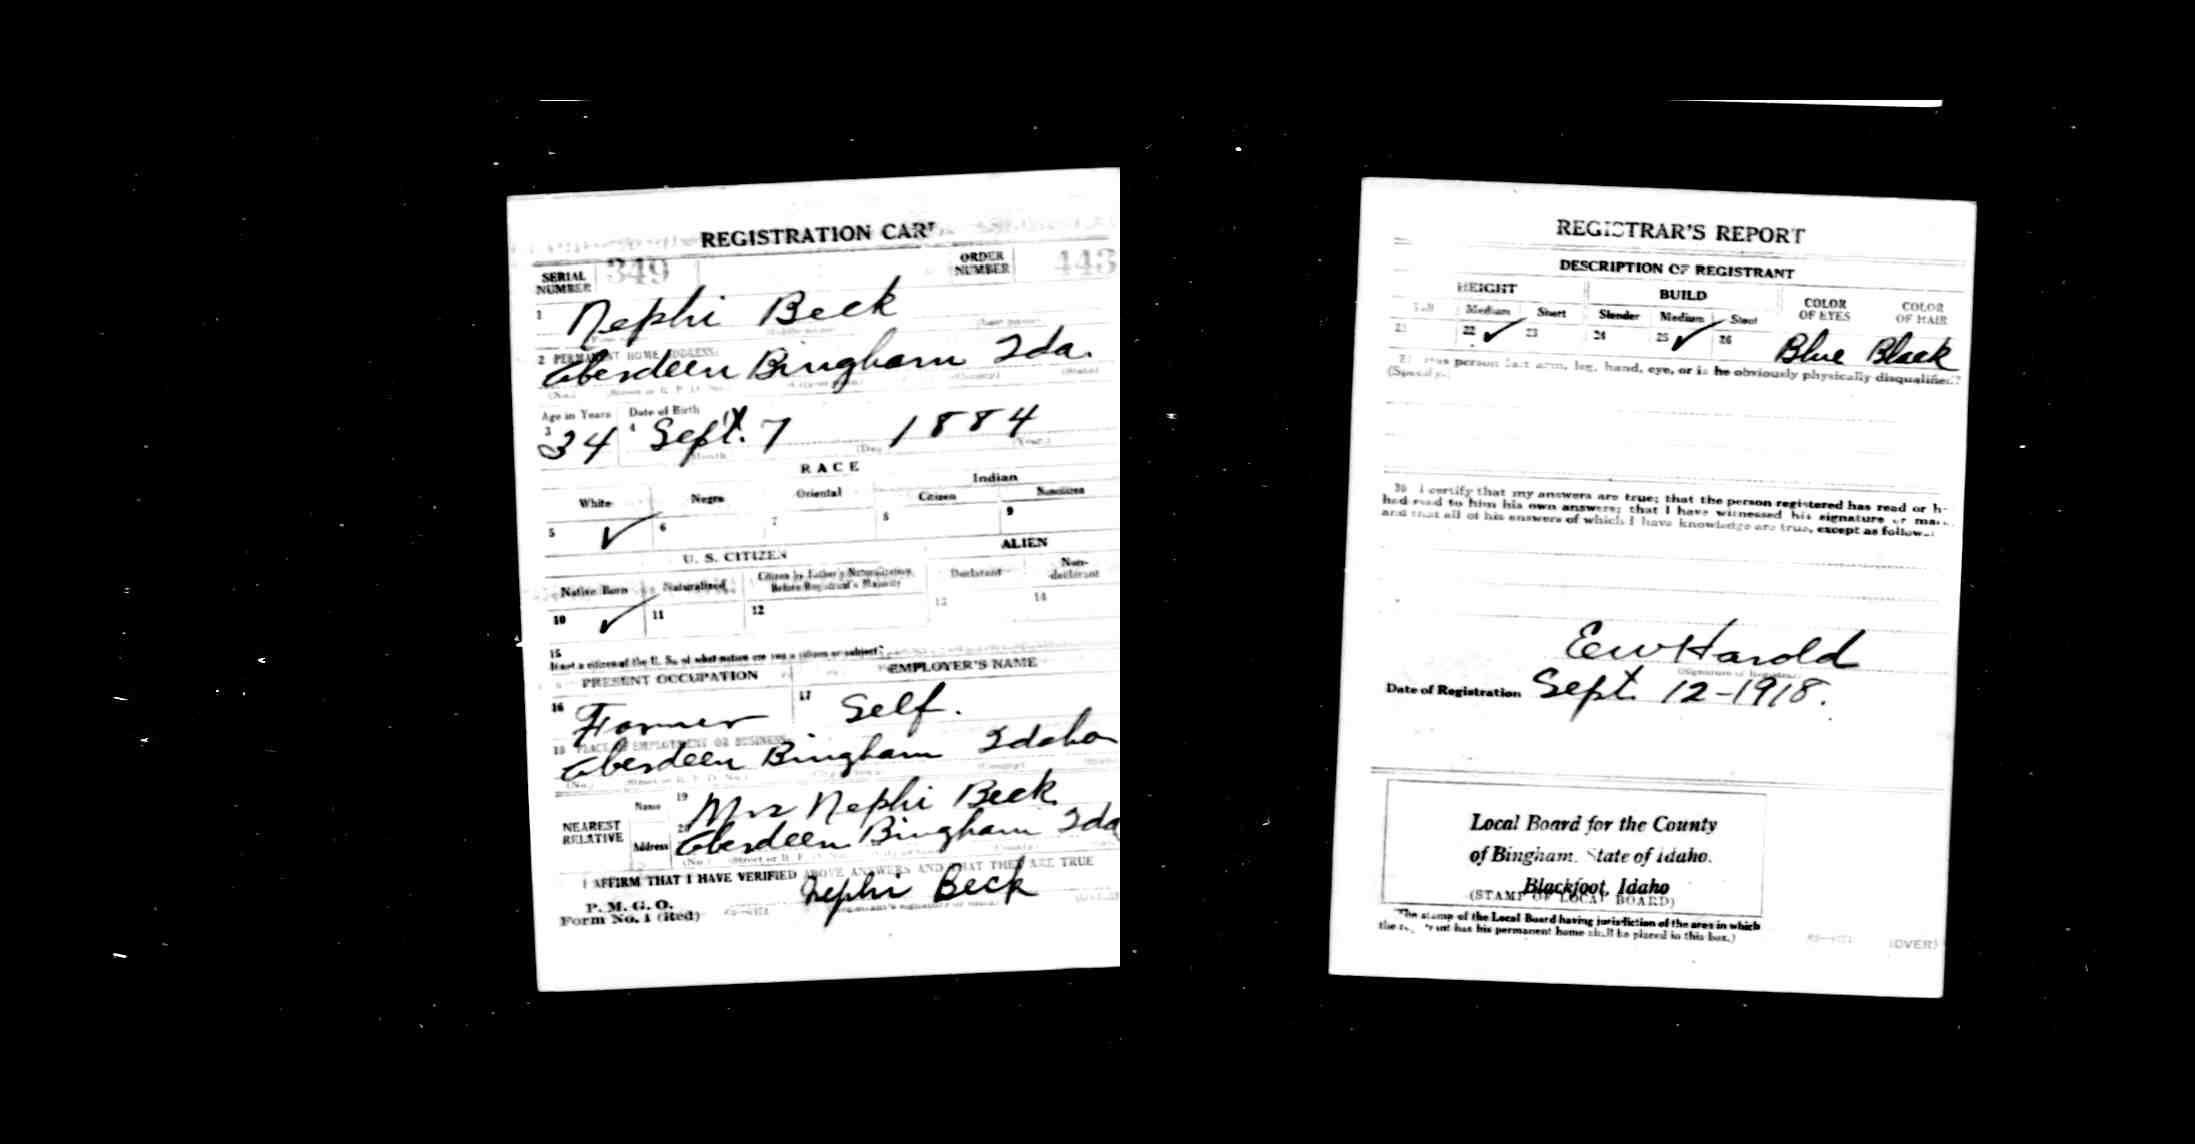 REGISTRATION CARD
SERIAL NUMBER 349 ORDER NUMBER 443
1 Nephi Beck
2 PERMANENT HOME ADDRESS:
Aberdeen Bingham Ida.
(No.) (Street or R. F. D. No.) (County) (State)
Age in Years Date of Birth
3 34 4 Sept. 7 1884
(Month (Day (Year.)
RACE
White Negro Oriental Indian
Citizen Noncitizen
5 ✓ 6 7 8 9
U. S. CITIZEN ALIEN
Native Born Naturalized Citizen by Father's Naturalization Before Registrant's Majority Declarant Non-declarant
10 ✓ 11 12 13 14
15
If not a citizen of the U. S., of what nation are you a citizen or subject?
PRESENT OCCUPATION EMPLOYER'S NAME
16 Farmer 17 Self.
18 PLACE OF EMPLOYMENT OR BUSINESS
Aberdeen Bingham Idaho
(No.) (Street or R. F. D. No.) (County)
NEAREST RELATIVE
Name 19 Mrs Nephi Beck
Address 20 Aberdeen Bingham Ida
(No.) (Street or R. F. D. No.)
I AFFIRM THAT I HAVE VERIFIED ABOVE ANSWERS AND THAT THEY ARE TRUE
P. M. G. O.
Form No. 1 (Red) Nephi Beck
REGISTRAR'S REPORT
DESCRIPTION OF REGISTRANT
HEIGHT BUILD COLOR OF EYES COLOR OF HAIR
Tall Medium Short Slender Medium Stout
21 22 ✓ 23 24 25 ✓ 26 Blue Black
Has person lost arm, leg, hand, eye, or is he obviously physically disqualified?
(Specify.)
30 I certify that my answers are true; that the person registered has read or h-
had read to him his own answers; that I have witnessed his signature or mark
and that all of his answers of which I have knowledge are true, except as follows:
E W Harold
(Signature of Registrar)
Date of Registration Sept. 12-1918.
Local Board for the County
of Bingham, State of Idaho.
Blackfoot, Idaho
(STAMP OF LOCAL BOARD)
(The stamp of the Local Board having jurisdiction of the area in which
the registrant has his permanent home shall be placed in this box.)
(OVER)